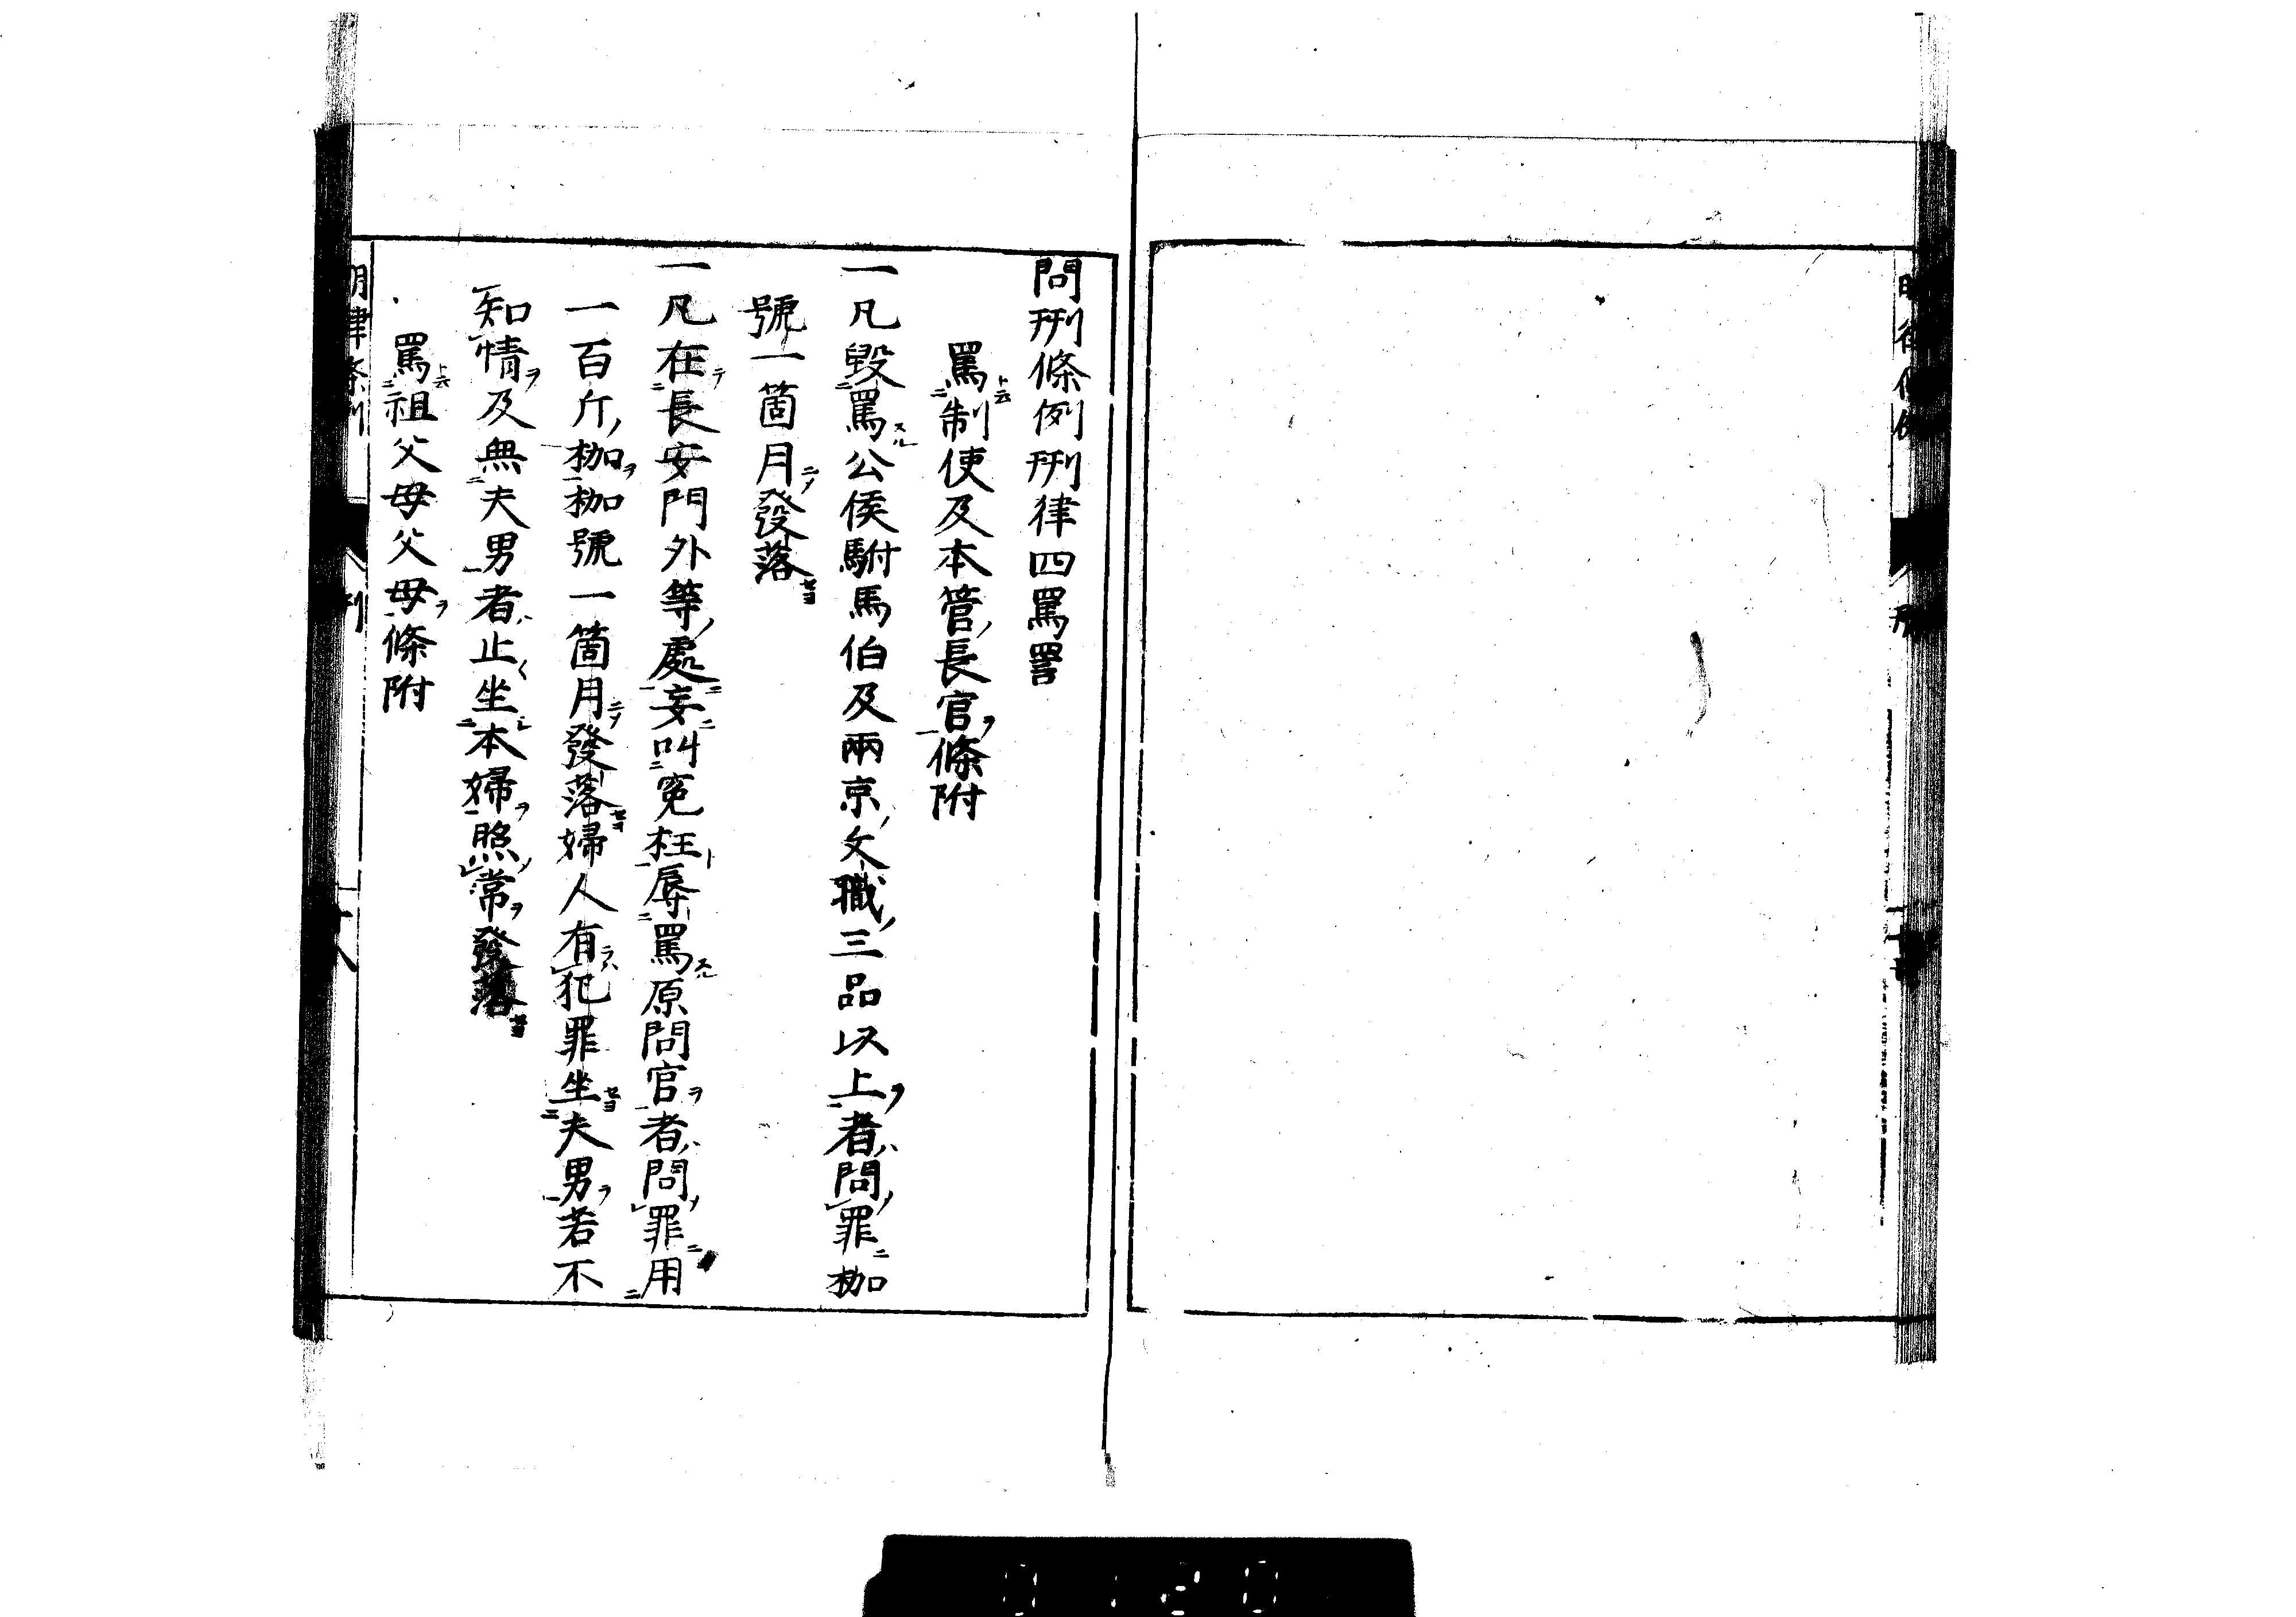 問刑條例刑律四罵詈
罵制使及本管長官條附
一凡毀罵公侯駙馬伯及兩京文職三品以上者問罪枷
號一箇月發落
一凡在長安門外等處妄叫冤枉辱罵原問官者問罪用
一百斤枷枷號一箇月發落婦人有犯罪坐夫男若不
知情及無夫男者止坐本婦照常發落
罵祖父母父母條附
0120